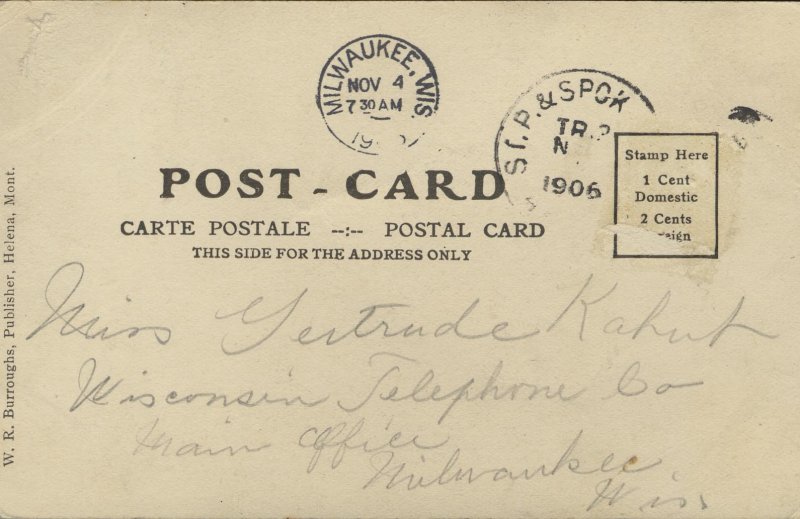 MILWAUKEE, WIS.
NOV 4
7 30 AM
ST. P. & SPOK
TR.
N
1906
Stamp Here
1 Cent
Domestic
2 Cents
POST - CARD
CARTE POSTALE --:-- POSTAL CARD
THIS SIDE FOR THE ADDRESS ONLY
W. R. Burroughs, Publisher, Helena, Mont.
Miss Gertrude
Wisconsin Telephone Co
Main Office
Milwaukee
Wis